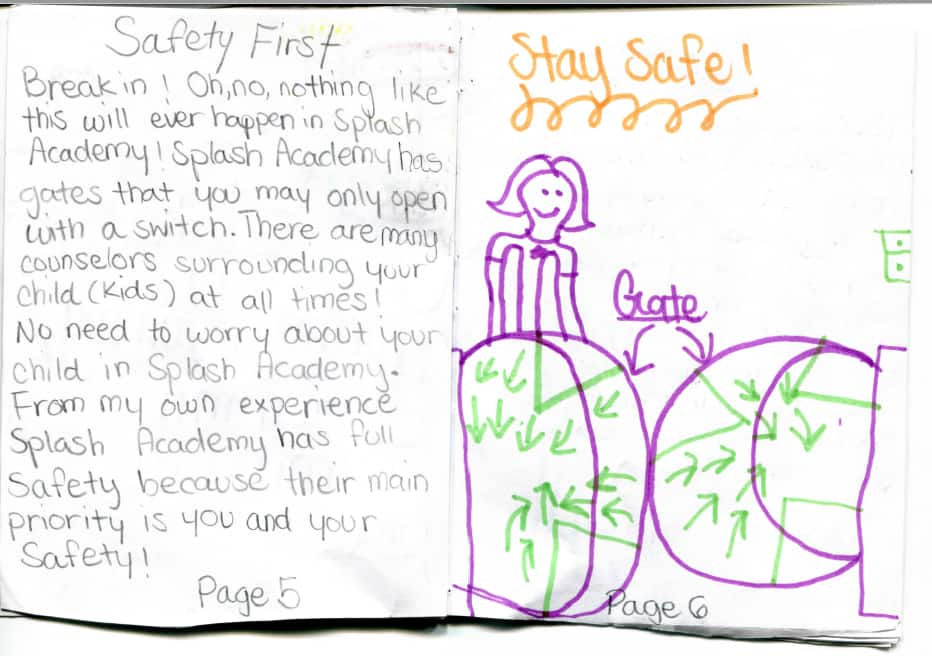 Safety First
Break in! Oh, no, nothing like
this will ever happen in Splash
Academy! Splash Academy has
gates that you may only open
with a switch. There are many
counselors surrounding your
child (Kids) at all times!
No need to worry about your
child in Splash Academy.
From my own experience
Splash Academy has full
Safety because their main
priority is you and your
Safety!
Page 5
Stay Safe!
Gate
Page 6